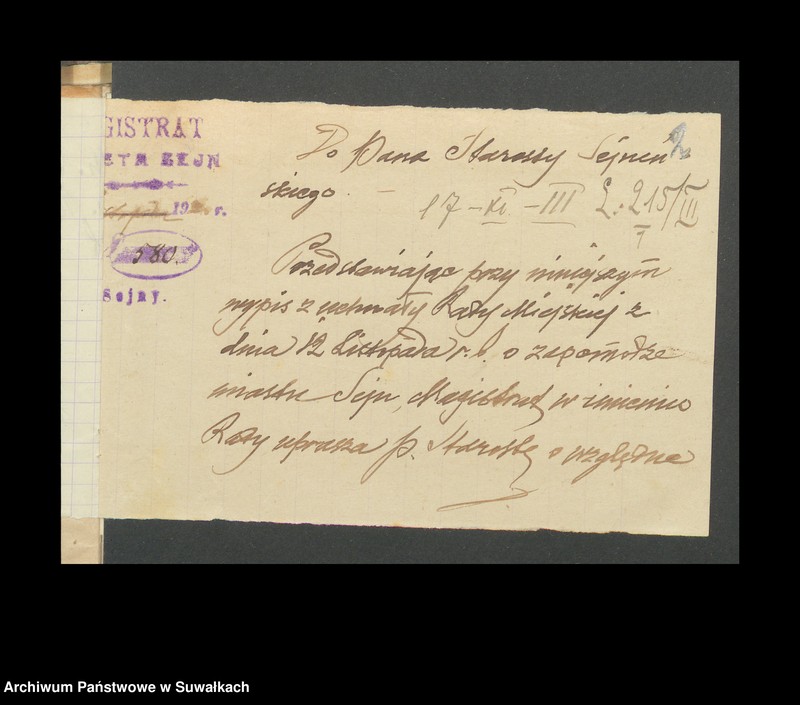 GISTRAT
ZEJN
19 r.
580.
Sejny.
2
Do Pana Starosty Sejneń
skiego. –
17-XI-III L. 215/III
Przedstawiając przy niniejszym
wypis z uchwały Rady Miejskiej z
dnia 12 Listopada r. b. o zapomodze
miastu Sejn, Magistrat w imieniu
Rady uprasza p. Starostę o względne
Archiwum Państwowe w Suwałkach